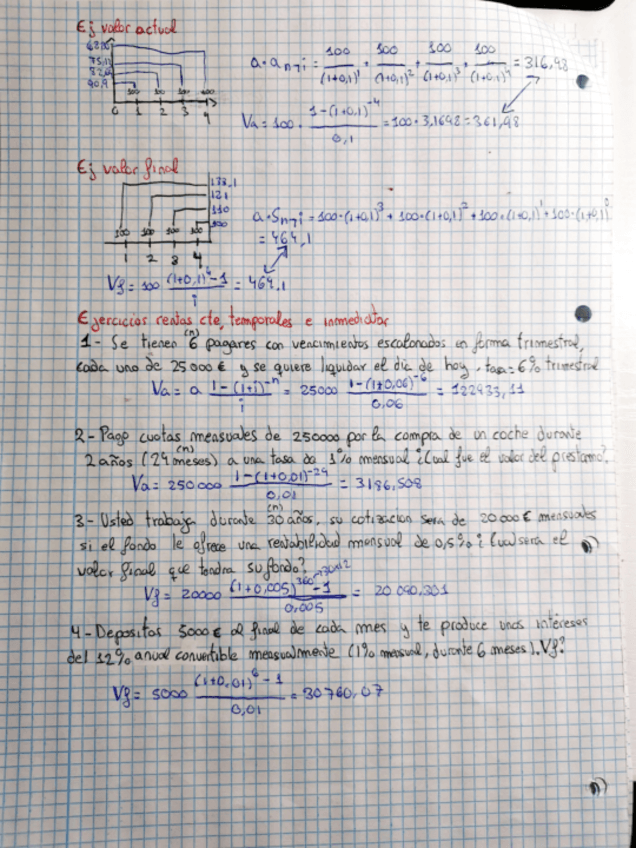 Ej valor actual
68,06
75,13
82,64
90,9
100 100 100 100
0 1 2 3 4
a·a n¬i = 100/(1+0,1)^1 + 100/(1+0,1)^2 + 100/(1+0,1)^3 + 100/(1+0,1)^4 = 316,98
Va = 100 · (1-(1+0,1)^-4)/0,1 = 100 · 3,1698 = 361,98
Ej valor final
133,1
121
110
100
100 100 100 100
1 2 3 4
a·S n¬i = 100·(1+0,1)^3 + 100·(1+0,1)^2 + 100·(1+0,1)^1 + 100·(1+0,1)^0
= 464,1
Vf = 100 ((1+0,1)^4-1)/i = 464,1
Ejercicios rentas cte, temporales e inmediatas
(n)
1- Se tienen 6 pagares con vencimientos escalonados en forma trimestral,
cada uno de 25000€ y se quiere liquidar el dia de hoy, tasa=6% trimestral
Va = a (1-(1+i)^-n)/i = 25000 (1-(1+0,06)^-6)/0,06 = 122933,11
2- Pago cuotas mensuales de 250000 por la compra de un coche durante
(n)
2 años (24 meses) a una tasa de 1% mensual ¿Cual fue el valor del prestamo?
Va = 250000 (1-(1+0,01)^-24)/0,01 = 3186,508
(n)
3- Usted trabaja durante 30 años, su cotizacion sera de 20000€ mensuales
si el fondo le ofrece una rentabilidad mensual de 0,5% ¿Cual sera el
valor final que tendra su fondo?
Vf = 20000 ((1+0,005)^360→30x12 -1)/0,005 = 20090,301
4- Depositas 5000€ al final de cada mes y te produce unos intereses
del 12% anual convertible mensualmente (1% mensual, durante 6 meses). Vf?
Vf = 5000 ((1+0,01)^6-1)/0,01 = 30760,07